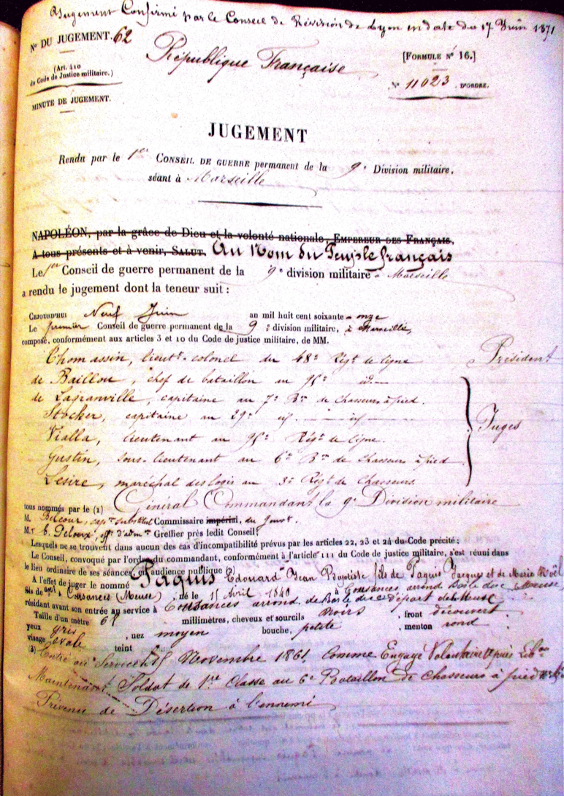 Jugement Confirmé par le Conseil de Révision de Lyon en date du 17 Juin 1871
N° DU JUGEMENT. 62
République Française
[FORMULE N° 16.]
(Art. 140
du Code de Justice militaire.)
N° 11023 D'ORDRE.
MINUTE DE JUGEMENT.
JUGEMENT
Rendu par le 1er CONSEIL DE GUERRE permanent de la 9e Division militaire,
séant à Marseille
NAPOLÉON, par la grâce de Dieu et la volonté nationale, EMPEREUR DES FRANÇAIS,
A tous présents et à venir, SALUT. Au Nom du Peuple français
Le 1er Conseil de guerre permanent de la 9e division militaire à Marseille
a rendu le jugement dont la teneur suit :
CEJOURD'HUI Neuf Juin an mil huit cent soixante-onze
Le premier Conseil de guerre permanent de la 9e division militaire, à Marseille,
composé, conformément aux articles 3 et 10 du Code de justice militaire, de MM.
Thomassin, lieut-colonel du 48e Régt de ligne Président
de Baillon, chef de bataillon au 95e id
de Lagranville, capitaine au 7e Bon de Chasseurs à pied.
Stocker, capitaine au 29e
Juges
Vialla, lieutenant au 95e Régt de Ligne.
Justin, sous-lieutenant au 6e Bon de Chasseurs à pied
Lesire, maréchal des logis au 3e Régt de Chasseurs
tous nommés par le (1) Général Commandant la 9e Division militaire
M. Commissaire impérial, du Gouvt.
M. E. Delour, Greffier près ledit Conseil;
Lesquels ne se trouvent dans aucun des cas d'incompatibilité prévus par les articles 22, 23 et 24 du Code précité;
Le Conseil, convoqué par l'ordre du commandant, conformément à l'article 111 du Code de justice militaire, s'est réuni dans
le lieu ordinaire de ses séances en audience publique
A l'effet de juger le nommé Paquis Edouard Jean Baptiste fils de Paquis Jacques et de Marie Noël
né le 15 Avril 1840 à Cousances arrond. de Bar le duc Meuse
résidant avant son entrée au service à Cousances arrond. de Bar le duc départ. de Meuse
Taille d'un mètre 64 millimètres, cheveux et sourcils noirs, front découvert
yeux gris, nez moyen bouche, petite, menton rond
visage ovale teint
(2) Entré au Service le 5 Novembre 1861, comme Engagé Volontaire
Maintenant Soldat de 1re Classe au 6e Bataillon de Chasseurs à pied
Prévenu de Désertion à l'ennemi